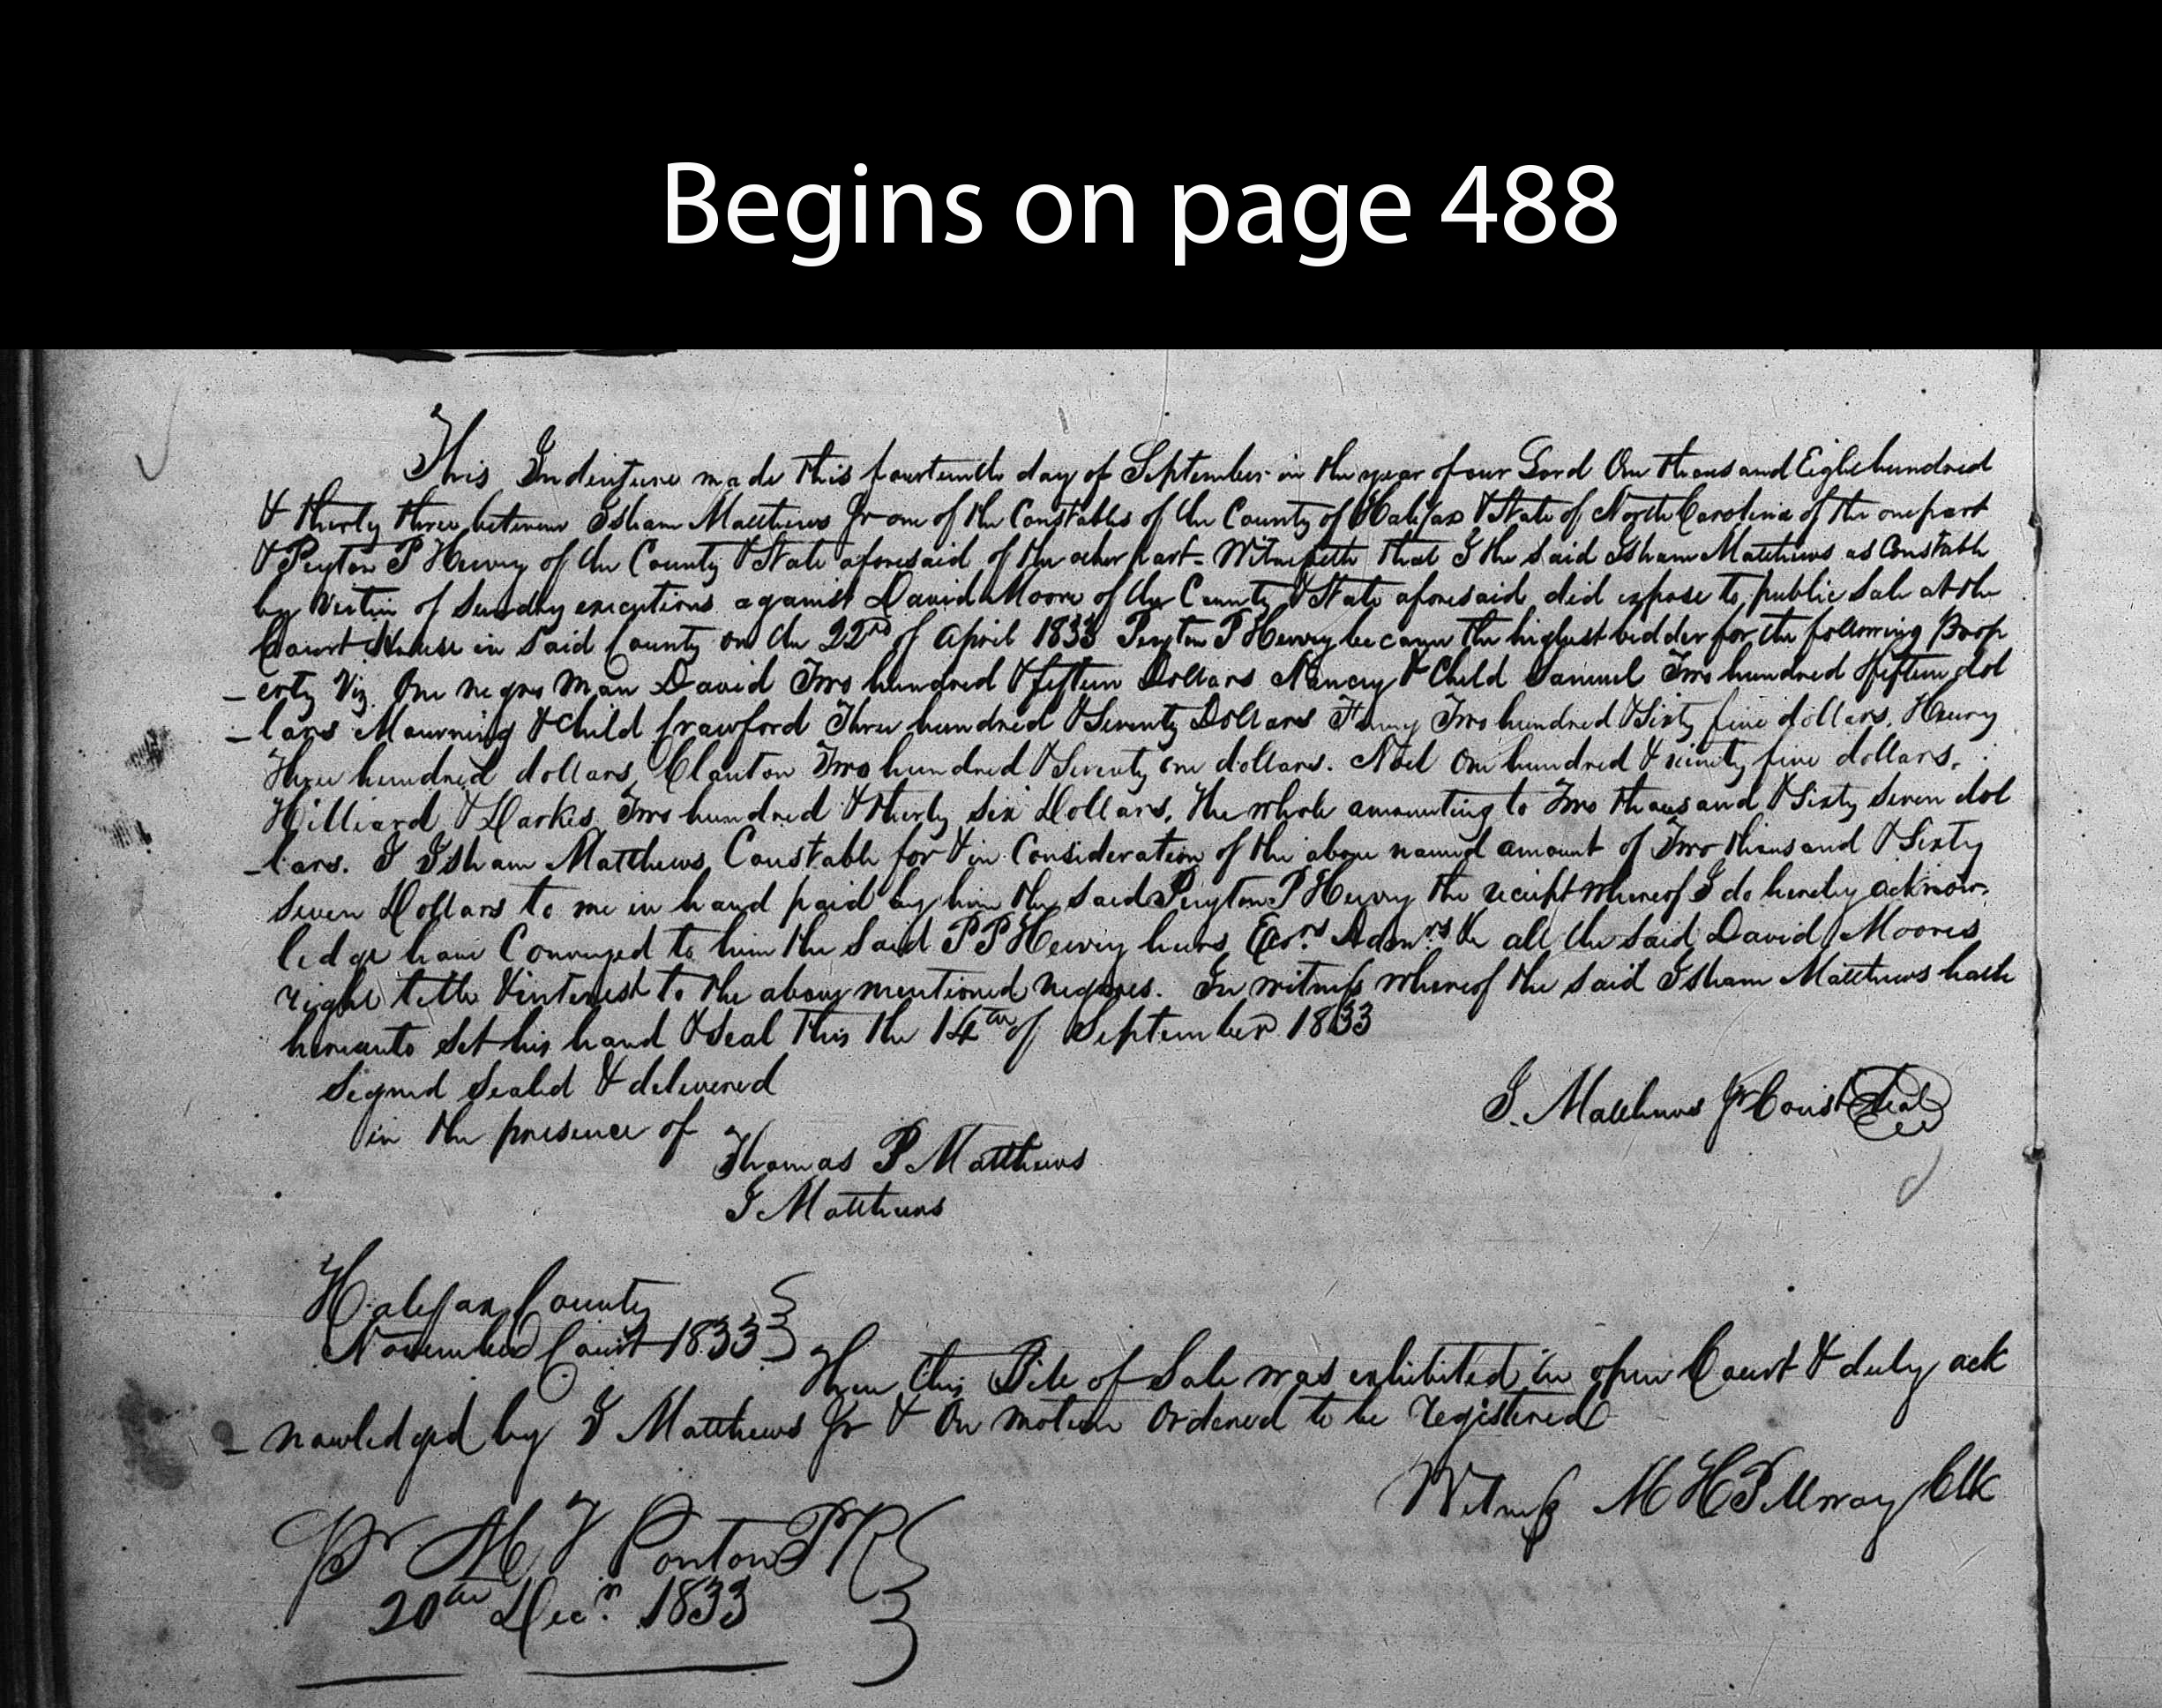 Begins on page 488
This Indenture made this fourteenth day of September in the year of our Lord One thousand Eight hundred
& thirty three between Isham Matthews Jr one of the Constables of the County of Halifax & State of North Carolina of the one part
& Peyton P Hervey of the County & State aforesaid of the other part - Witnesseth that I the said Isham Matthews as Constable
by Virtue of Sundry executions against David Moore of the County & State aforesaid did expose to public Sale at the
Court House in Said County on the 22nd of April 1833 Peyton P Hervey became the highest bidder for the following Prop
- erty Viz. One negro Man David Two hundred & fifteen Dollars Nancy & Child Samuel Two hundred & fifteen dol
- lars Mourning & Child Crawford Three hundred & Seventy Dollars Two hundred & Sixty five dollars, Henry
Three hundred dollars, Clanton Two hundred & Seventy one dollars. Noel One hundred & ninety five dollars,
Hilliard & Darkis, Two hundred & thirty Six Dollars, the whole amounting to Two thousand & Sixty Seven dol
- lars. I Isham Matthews, Constable for & in Consideration of the above named amount of Two thousand & Sixty
Seven Dollars to me in hand paid by him the Said Peyton P Hervey the receipt whereof I do hereby acknow-
ledge have Conveyed to him the Said P P Hervey heirs, Exors Admrs &c all the Said David Moores
right title & interest to the above mentioned negroes. In witness whereof the Said Isham Matthews hath
hereunto Set his hand & Seal this the 14th of September 1833
Signed Sealed & delivered
in the presence of
I. Matthews Jr Const Seal
Thomas P Matthews
I Matthews
Halifax County
November Court 1833
Then this Bill of Sale was exhibited in open Court & duly ack
- nowledged by I Matthews Jr & On motion Ordered to be registered
Witness M H Pettway Clk
Pr M T Ponton P R
20th Decr. 1833